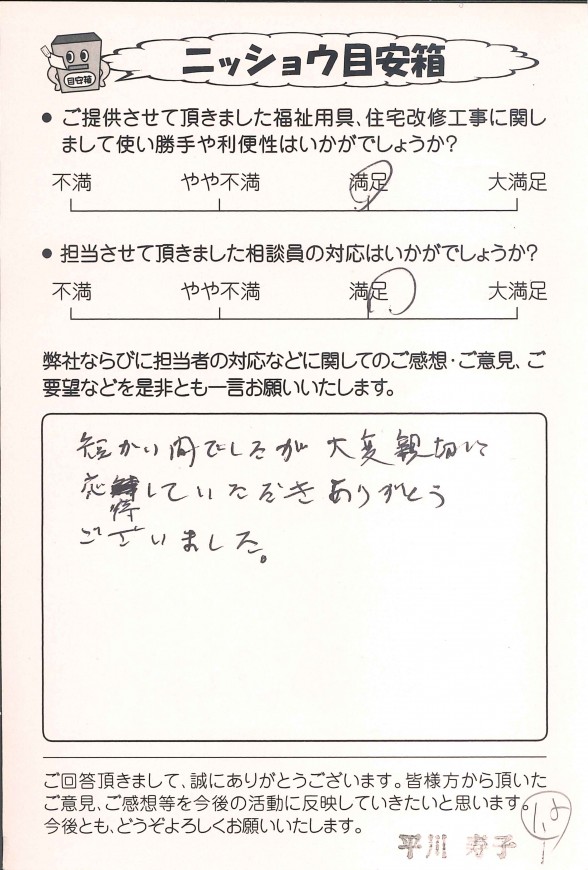 ニッショウ目安箱
目安箱
● ご提供させて頂きました福祉用具、住宅改修工事に関し
まして使い勝手や利便性はいかがでしょうか?
不満 やや不満 満足 大満足
● 担当させて頂きました相談員の対応はいかがでしょうか?
不満 やや不満 満足 大満足
弊社ならびに担当者の対応などに関してのご感想・ご意見、ご
要望などを是非とも一言お願いいたします。
短かい間でしたが 大変親切に
応待していただきありがとう
ございました。
ご回答頂きまして、誠にありがとうございます。皆様方から頂いた
ご意見、ご感想等を今後の活動に反映していきたいと思います。
今後とも、どうぞよろしくお願いいたします。
平川 寿子